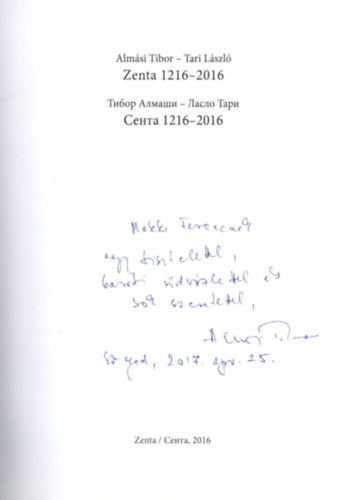 Almási Tibor – Tari László
Zenta 1216–2016
Тибор Алмаши – Ласло Тари
Сента 1216–2016
Ferencnek
nagy tisztelettel,
baráti üdvözlettel és
sok szeretettel,
2017. ápr. 25.
Zenta / Сента, 2016